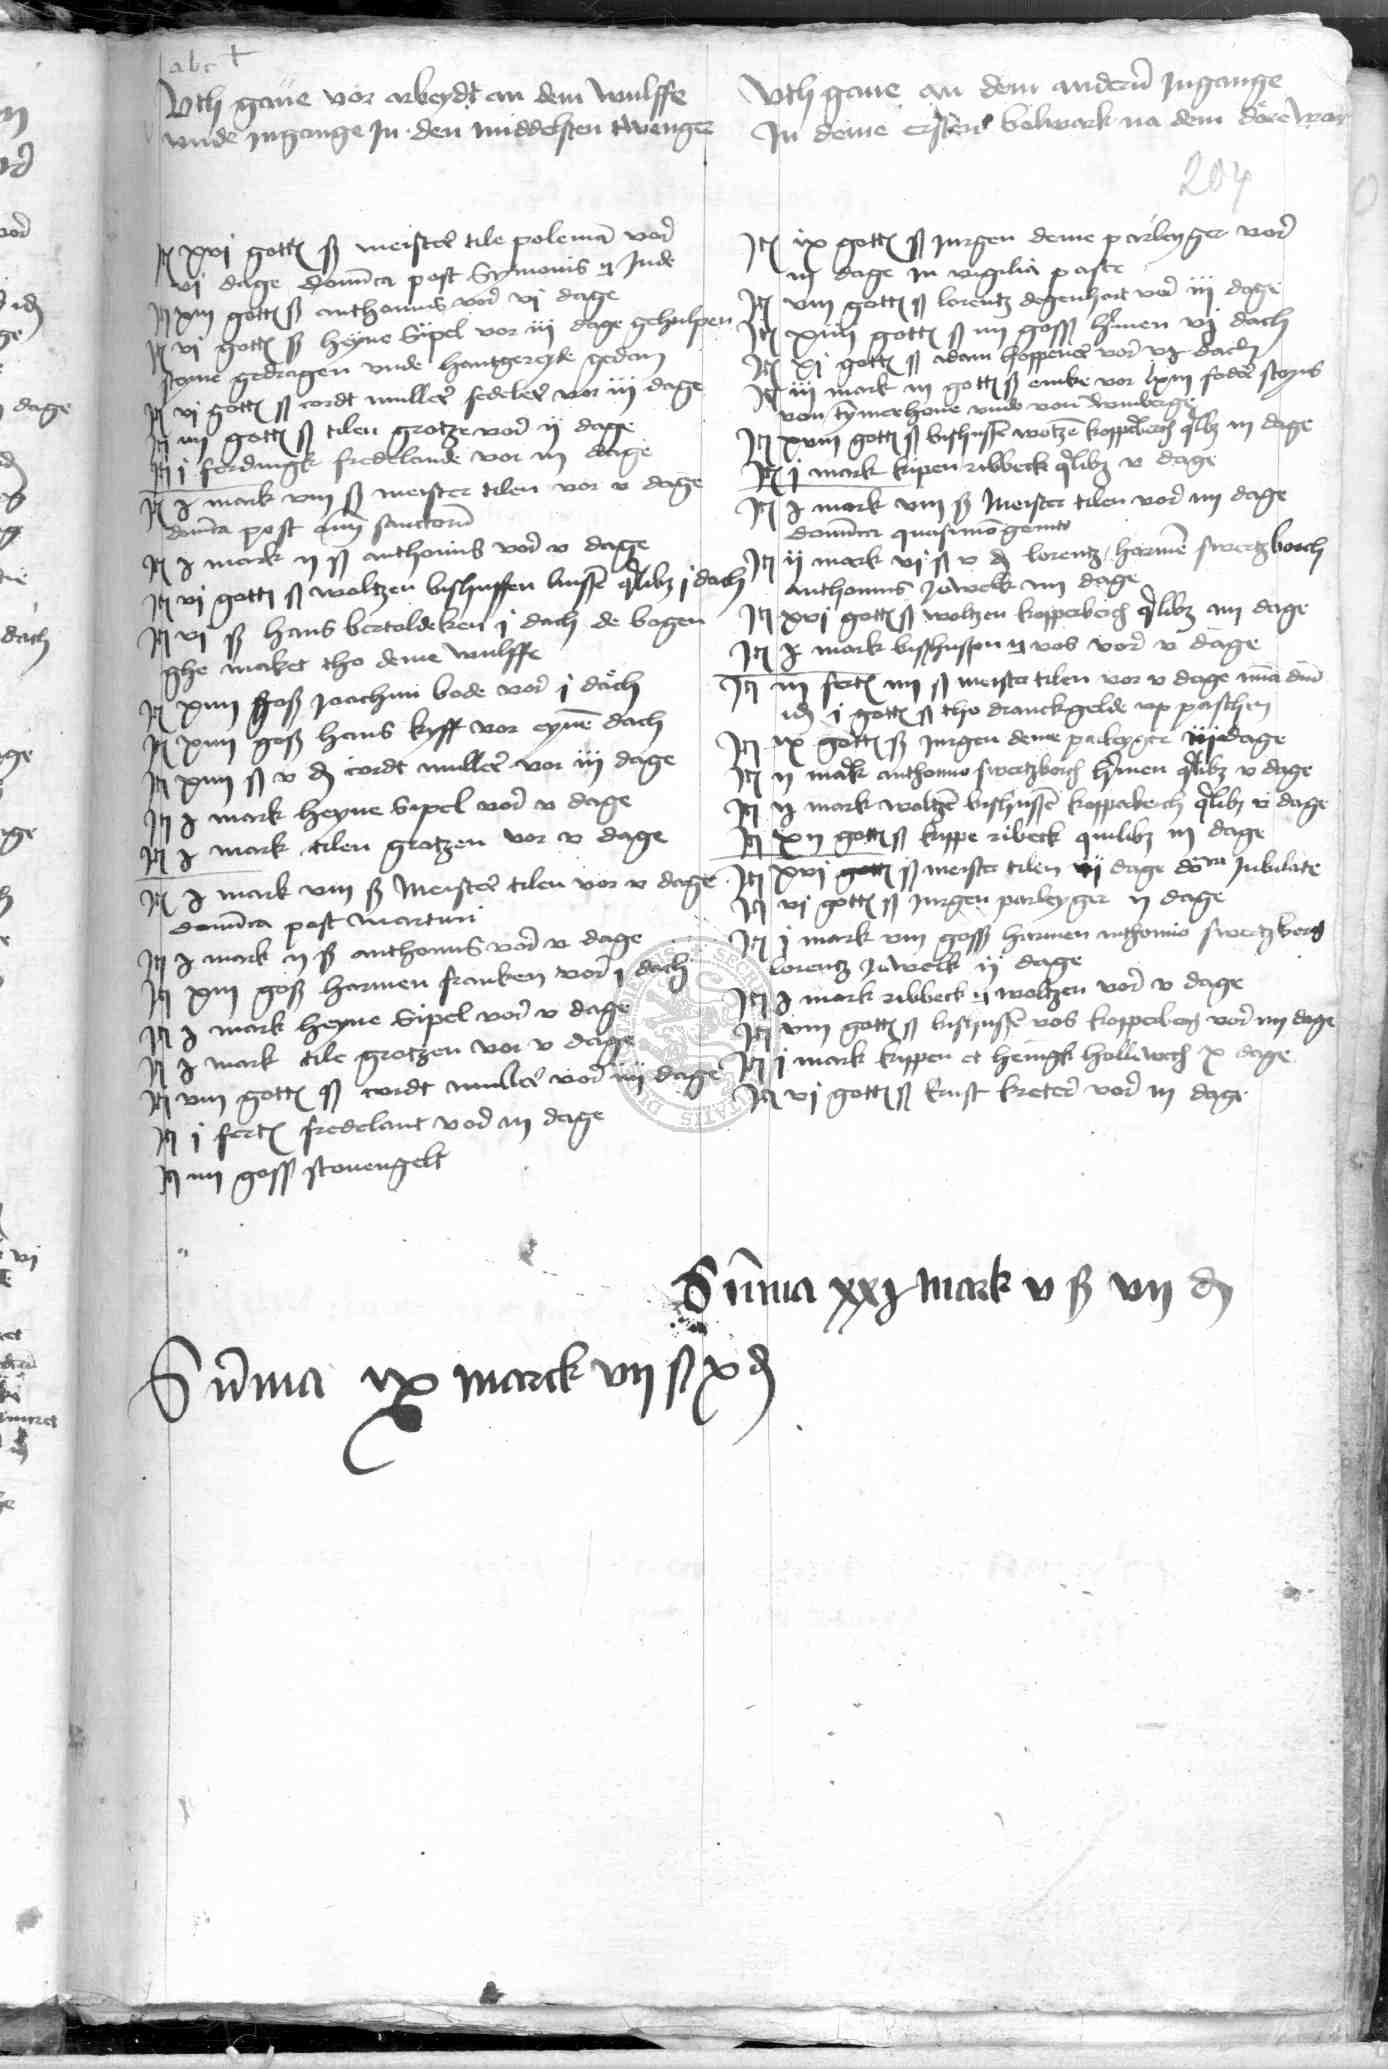 abc +
Vth gaue vor arbeydt an dem wulffe
vnde ingange in den middelsten twenger
Itē xvj gottī ß meister tile polemā vor
vj dage dominica post Symonis ꝫ Jude
Itē xiii gottī ß anthonius vor vj dage
Itē vj gottī ß heyne Sipel vor iij dage gehulpen
steine gedragen vnde hantgereyk gedan
Itē vj gottī ß cordt muller sedeler vor iij dage
Itē iiij gottī ß tilen grotze vor ij dage
Itē j ferdingk fredelande vor iij dage
Itē j mark viii ß meister tilen vor v dage
dominca post omū sanctorū
Itē j mark ii ß anthonius vor v dage
Itē vj gottī ß woltzen bishussen qlibz j dach
Itē vj ß hans bertoldeken j dach de bogen
ghe maket tho deme wulffe
Itē xiiii goß Joachim bode vor j dach
Itē xiiii goß hans kyff vor eynē dach
Itē xiiii ß v d cordt muller vor iij dage
Itē j mark heyne Sipel vor v dage
Itē j mark tilen grotzen vor v dage
Itē j mark viii ß Meister tilen vor v dage
dominca post martini
Itē j mark ii ß anthonius vor v dage
Itē xiii goß harmen franken vor j dach
Itē j mark heyne Sipel vor v dage
Itē j mark tile grotzen vor v dage
Itē viii gottī ß cordt muller vor iiij dage
Itē j fertī fredelant vor iii dage
Itē iiii goß stouengelt
Summa ix marck vii ß x d
Vth gaue an dem anderū ingange
In deme ersten bolwark na dem dore war
204
Itē ix gottī ß Jurgen deme parleyger vor
iij dage in vigilia pasce
Itē viii gottī ß lorentz degenhart vor iij dage
Itē xiiii gottī ß iiii goß hermen vj dach
Itē xj gottī ß adam koppener vor vj dach
Itē iij mark iii gottī ß emke vor lxiii foder steyns
von tymerhone vnde von
Itē xviii gottī ß bishussē woltzē koppeberch qlibz iii dage
Itē j mark kripen ribbeck qlibz v dage
Itē j mark viii ß Meister tilen vor iiii dage
dominica quasimodogeniti
Itē ij mark vj ß v d lorentz harmē swertzboch
anthonius Juwelk iiii dage
Itē xvj gottī ß woltzen kopperberch qlibz iiii dage
Itē j mark bisshussen ꝫ vos vor v dage
Itē iii fertī iiii ß meister tilen vor v dage mīa dnī
idē j gottī ß tho dranckgelde vp paschen
Itē ix gottī ß Jurgen deme parleyger iiij dage
Itē ii mark anthonio swertzboch hermen qlibz v dage
Itē ij mark woltzē bishussē kopperberch qlibz v dage
Itē xii gottī ß krippe ribeck quilibz iii dage
Itē xvj gottī ß meister tilen vj dage dōca Jubilate
Itē vj gottī ß Jurgen parleyger ii dage
Itē j mark viii goß harmen anthonio swertzberg
lorentz Juwelk ij dage
Itē j mark ribbeck ꝫ woltzen vor v dage
Itē viii gottī ß bishussē vos kopperberg vor iiii dage
Itē j mark krippen et henigk holluwech x dage
Itē vj gottī ß Ernst kreter vor iii dage
Summa xxj mark v ß vii d